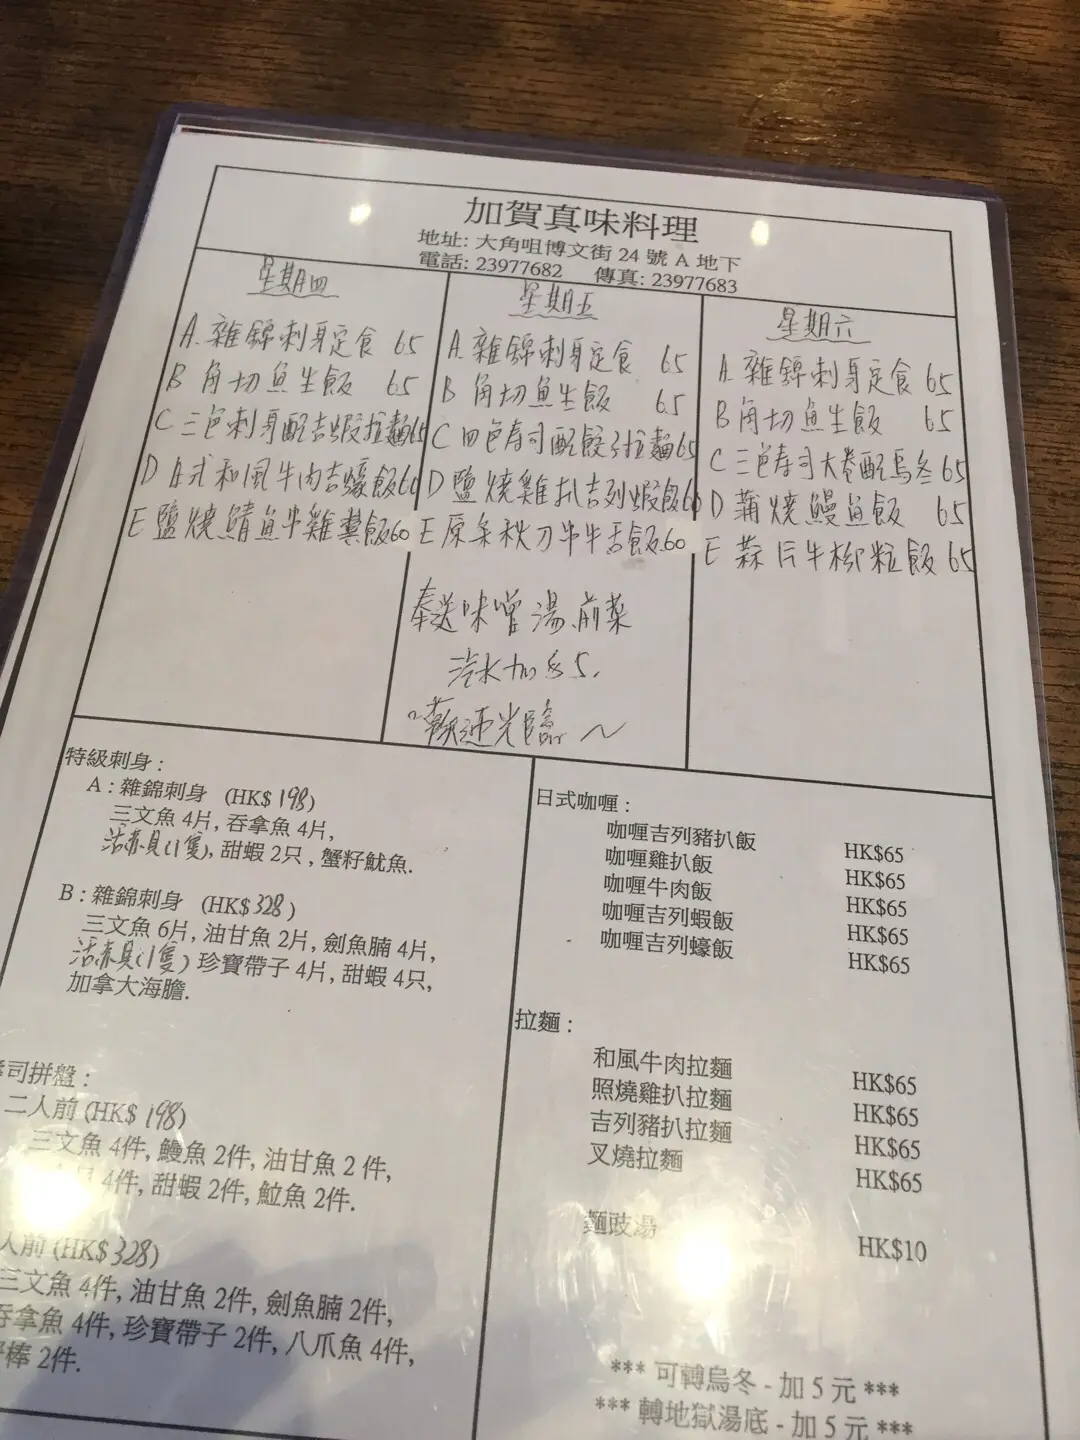 加賀真味料理
地址: 大角咀博文街 24 號 A 地下
電話: 23977682 傳真: 23977683
星期四
A. 雜錦刺身定食 65
B 角切魚生飯 65
C 三色刺身配吉蝦拉麵65
D 日式和風牛肉吉蠔飯60
E 鹽燒鯖魚牛雞煲飯60
星期五
A. 雜錦刺身定食 65
B 角切魚生飯 65
C 四色寿司配餃子拉麵65
D 鹽燒雞扒吉列蝦飯60
E 原条秋刀牛牛舌飯60
奉送味噌湯.前菜
汽水加多5.
歡迎光臨～
星期六
A. 雜錦刺身定食 65
B 角切魚生飯 65
C 三色寿司大卷配烏冬 65
D 蒲燒鰻魚飯 65
E 蒜片牛柳粒飯 65
特級刺身 :
A : 雜錦刺身 (HK$ 198)
三文魚 4片, 吞拿魚 4片,
活赤貝(1隻), 甜蝦 2只 , 蟹籽魷魚.
B : 雜錦刺身 (HK$ 328)
三文魚 6片, 油甘魚 2片, 劍魚腩 4片,
活赤貝(1隻) 珍寶帶子 4片, 甜蝦 4只,
加拿大海膽.
司拼盤 :
二人前 (HK$ 198)
三文魚 4件, 鰻魚 2件, 油甘魚 2 件,
4件, 甜蝦 2件, 鮋魚 2件.
人前 (HK$ 328)
三文魚 4件, 油甘魚 2件, 劍魚腩 2件,
吞拿魚 4件, 珍寶帶子 2件, 八爪魚 4件,
棒 2件.
日式咖喱 :
咖喱吉列豬扒飯 HK$65
咖喱雞扒飯 HK$65
咖喱牛肉飯 HK$65
咖喱吉列蝦飯 HK$65
咖喱吉列蠔飯 HK$65
拉麵 :
和風牛肉拉麵 HK$65
照燒雞扒拉麵 HK$65
吉列豬扒拉麵 HK$65
叉燒拉麵 HK$65
麵豉湯 HK$10
*** 可轉烏冬 - 加 5 元 ***
*** 轉地獄湯底 - 加 5 元 ***